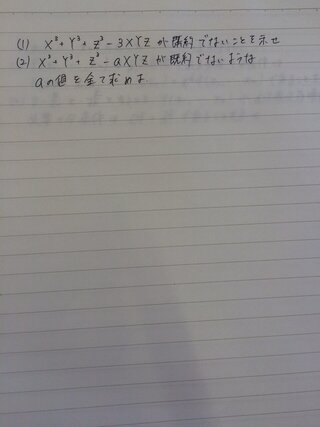 (1) X³+Y³+Z³-3XYZ が既約でないことを示せ
(2) X³+Y³+Z³-aXYZ が既約でないような
aの値を全て求めよ.